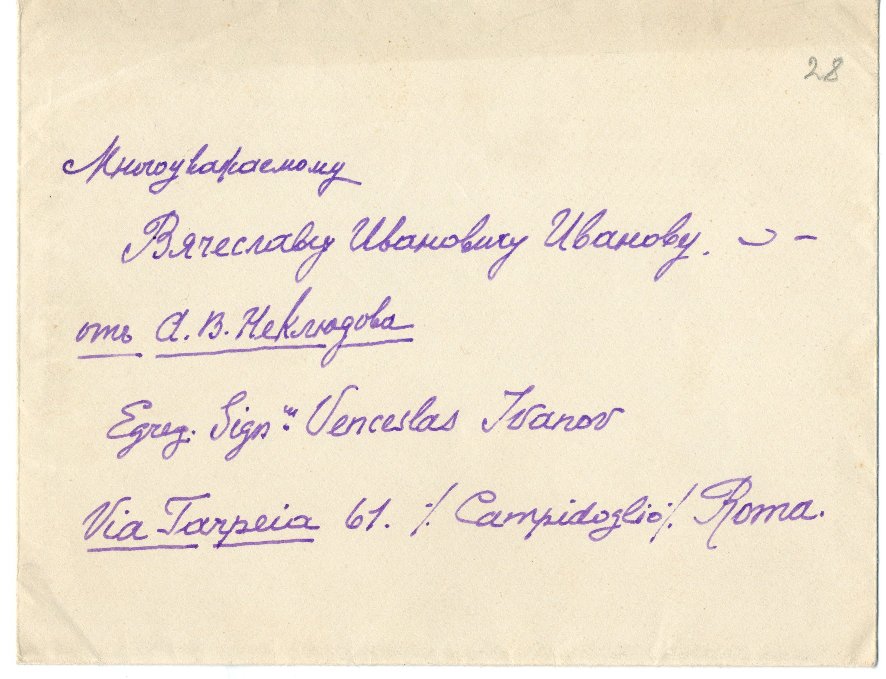 28
Многоуважаемому
Вячеславу Ивановичу Иванову.
отъ А. В. Неклюдова
Egreg. Sign.re Venceslas Ivanov
Via Tarpeia 61. ·/. Campidoglio ·/. Roma.